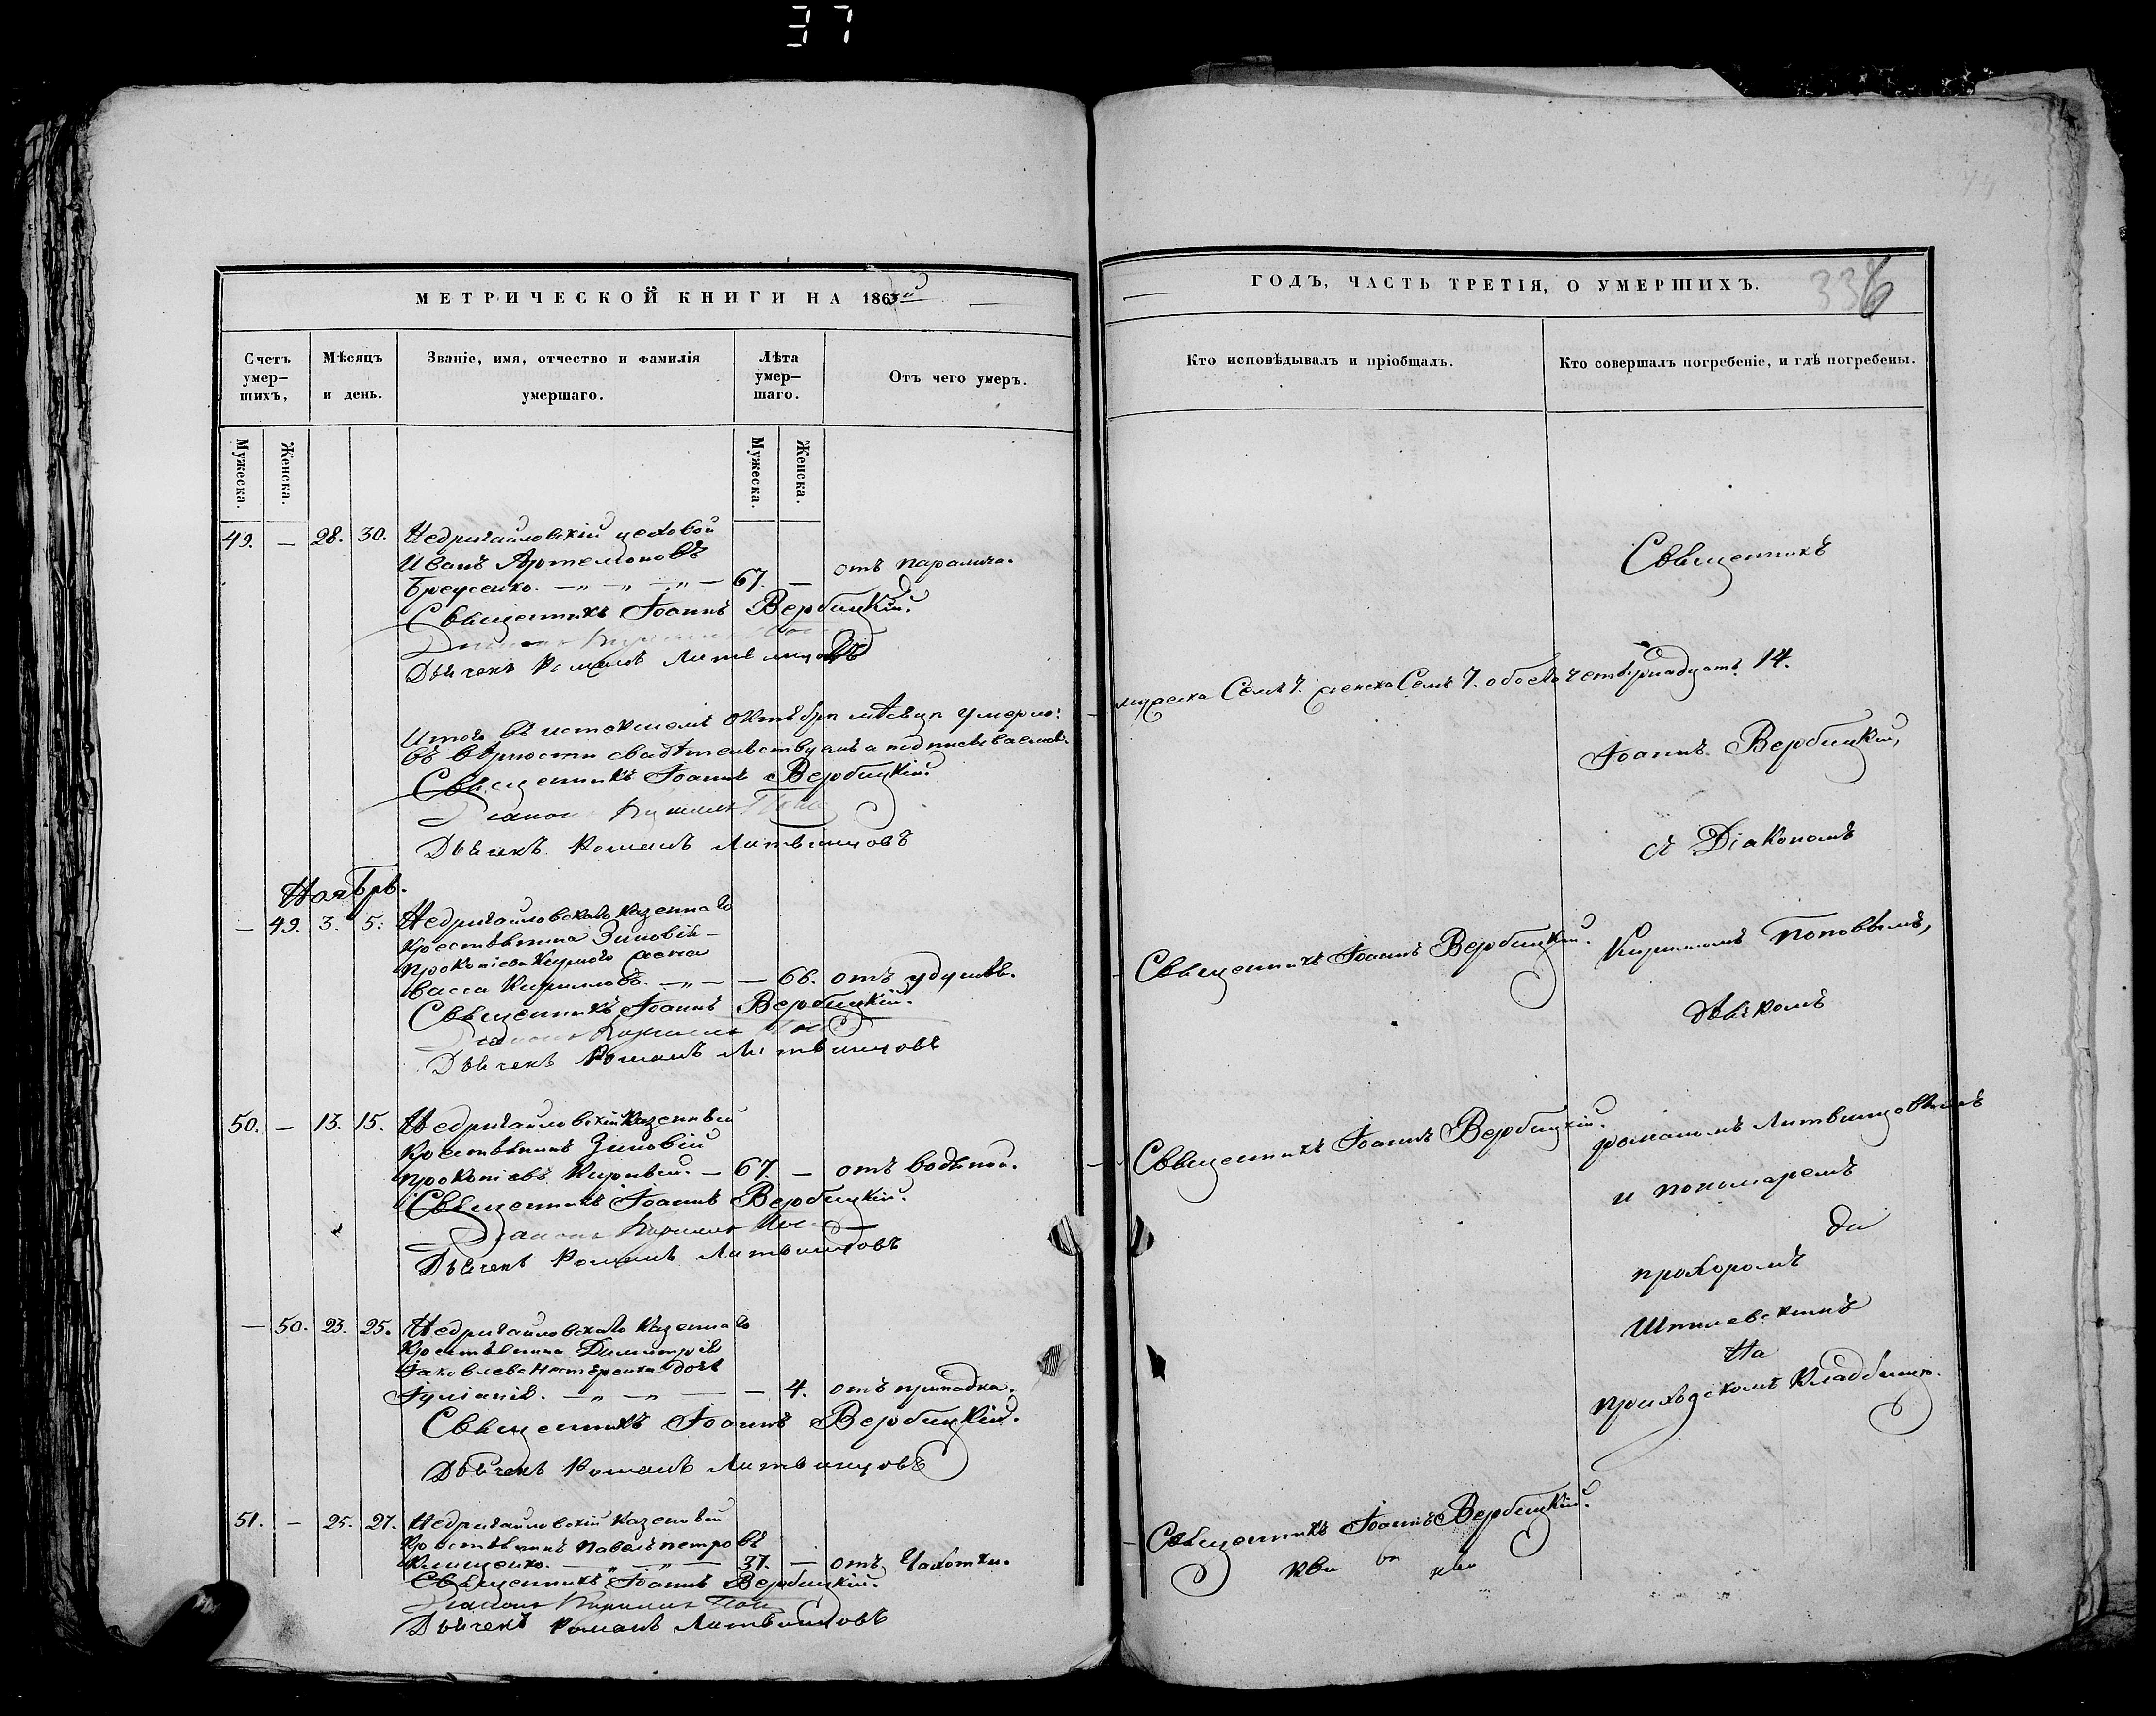 37
МЕТРИЧЕСКОЙ КНИГИ НА 1863й
Счетъ умер-
шихъ,
Мѣсяцъ
и день.
Званіе, имя, отчество и фамилія
умершаго.
Лѣта
умер-
шаго.
Отъ чего умеръ.
Мужеска.
Женска.
Мужеска.
Женска.
49. — 28. 30. Недригайловскій цеховой
Иванъ Артемоновъ
67. — отъ паралича.
Священникъ Іоаннъ Вербицкій.
Дьячекъ Романъ Литвинцовъ
Итого въ истекшемъ октябрѣ мѣсяцѣ умерло:
въ вѣрности свидѣтельствуемъ и подписываемся
Священникъ Іоаннъ Вербицкій.
Діаконъ Кириллъ Поп
Дьячекъ Романъ Литвинцовъ
Ноябрь.
— 49. 3. 5. Недригайловскаго казеннаго
крестьянина Зиновія
Прокопіева жена
Васса Кирилова. — — 66. отъ удушья.
Священникъ Іоаннъ Вербицкій.
Діаконъ Кириллъ Поп
Дьячекъ Романъ Литвинцовъ
50. — 13. 15. Недригайловскій казенный
крестьянинъ Зиновій
Прокопіевъ — 67. — отъ водяной.
Священникъ Іоаннъ Вербицкій.
Діаконъ Кириллъ Поп
Дьячекъ Романъ Литвинцовъ
— 50. 23. 25. Недригайловскаго казеннаго
крестьянина Димитрія
Іаковлева Нестеренка дочь
Іуліанія. — — — 4. отъ припадка.
Священникъ Іоаннъ Вербицкій.
Дьячекъ Романъ Литвинцовъ
51. — 25. 27. Недригайловскій казенный
крестьянинъ Павелъ Петровъ
Клищенко. — 37. — отъ чахотки.
Священникъ Іоаннъ Вербицкій.
Діаконъ Кириллъ Поп
Дьячекъ Романъ Литвинцовъ
ГОДЪ, ЧАСТЬ ТРЕТІЯ, О УМЕРШИХЪ.
336
Кто исповѣдывалъ и пріобщалъ.
Кто совершалъ погребеніе, и гдѣ погребены.
Священникъ
мужеска Семь 7. женска Семь 7. обоего четырнадцать 14.
Іоаннъ Вербицкій,
съ Діакономъ
Священникъ Іоаннъ Вербицкій.
Кириломъ Поповымъ,
дьячкомъ
Священникъ Іоаннъ Вербицкій.
Романомъ Литвинцовымъ
и пономаремъ
Прохоромъ
На
приходскомъ кладбищѣ.
Священникъ Іоаннъ Вербицкій.